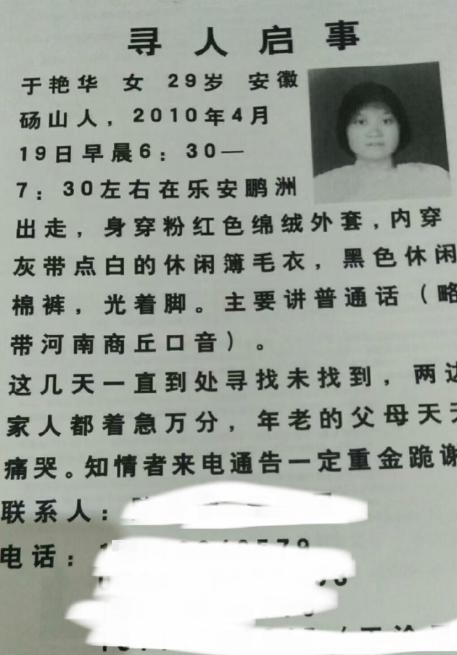 寻人启事
于艳华 女 29岁 安徽
砀山人，2010年4月
19日早晨6：30—
7：30左右在乐安鹏洲
出走，身穿粉红色绵绒外套,内穿
灰带点白的休闲薄毛衣，黑色休闲
棉裤，光着脚。主要讲普通话（略
带河南商丘口音）。
这几天一直到处寻找未找到，两边
家人都着急万分，年老的父母天天
痛哭。知情者来电通告一定重金跪谢
联系人：
电话：